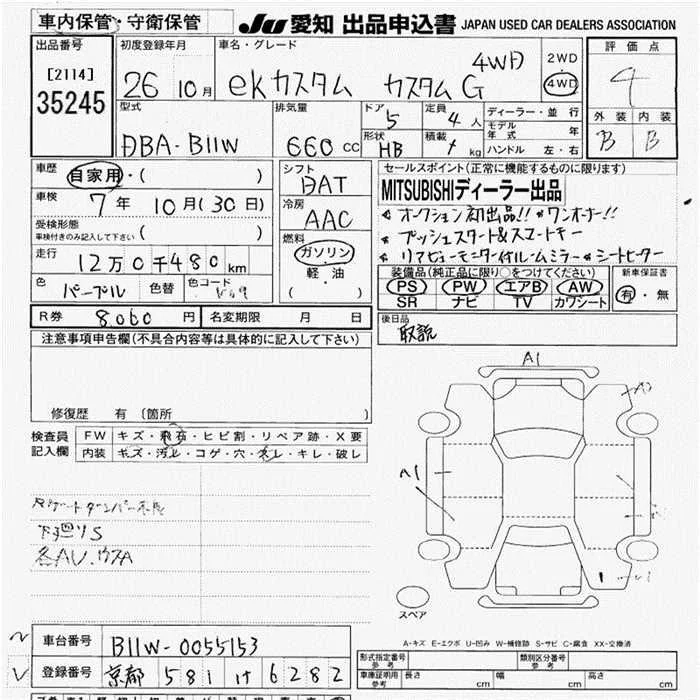 車内保管・守衛保管
JU 愛知 出品申込書 JAPAN USED CAR DEALERS ASSOCIATION
出品番号
[2114]
35245
初度登録年月
26 10月
車名・グレード
ekカスタム カスタムG 4WD
2WD
4WD
評価点
4
外装 内装
B B
型式
DBA-B11W
排気量
660 cc
ドア
5
定員
4人
形状
HB
積載
kg
ディーラー・並行
モデル年式 年
ハンドル 左・右
車歴
自家用・( )
車検
7年 10月(30日)
受検形態
車検付きのみ記入して下さい( )
走行
12万0千480km
色
パープル
色替
色コード
シフト
DAT
冷房
AAC
燃料
ガソリン
軽・油
( )
セールスポイント(正常に機能するものに限ります)
MITSUBISHIディーラー出品
オークション初出品!! ワンオーナー!!
プッシュスタート&スマートキー
リアビューモニター付ルームミラー シートヒーター
装備品(純正品に限り○をつけてください)
PS PW エアB AW
SR ナビ TV カワシート
新車保証書
有・無
R券 8,060円
名変期限 月 日
後日品
取説
注意事項申告欄(不具合内容等は具体的に記入して下さい)
修復歴 有 〔箇所 〕
検査員記入欄
FW キズ・飛石・ヒビ割・リペア跡・X要
内装 キズ・汚レ・コゲ・穴・ネレ・キレ・破レ
下廻りS
各AU.ウスA
A1
A2
A1
スペア
A-キズ E-エクボ U-凹み W-補修跡 S-サビ C-腐食 XX-交換済
車台番号 B11W-0055153
登録番号 京都 581 け 6282
形式指定番号 参考
類別区分番号 参考
車庫証明用 参考 長さ cm 幅 cm 高さ cm